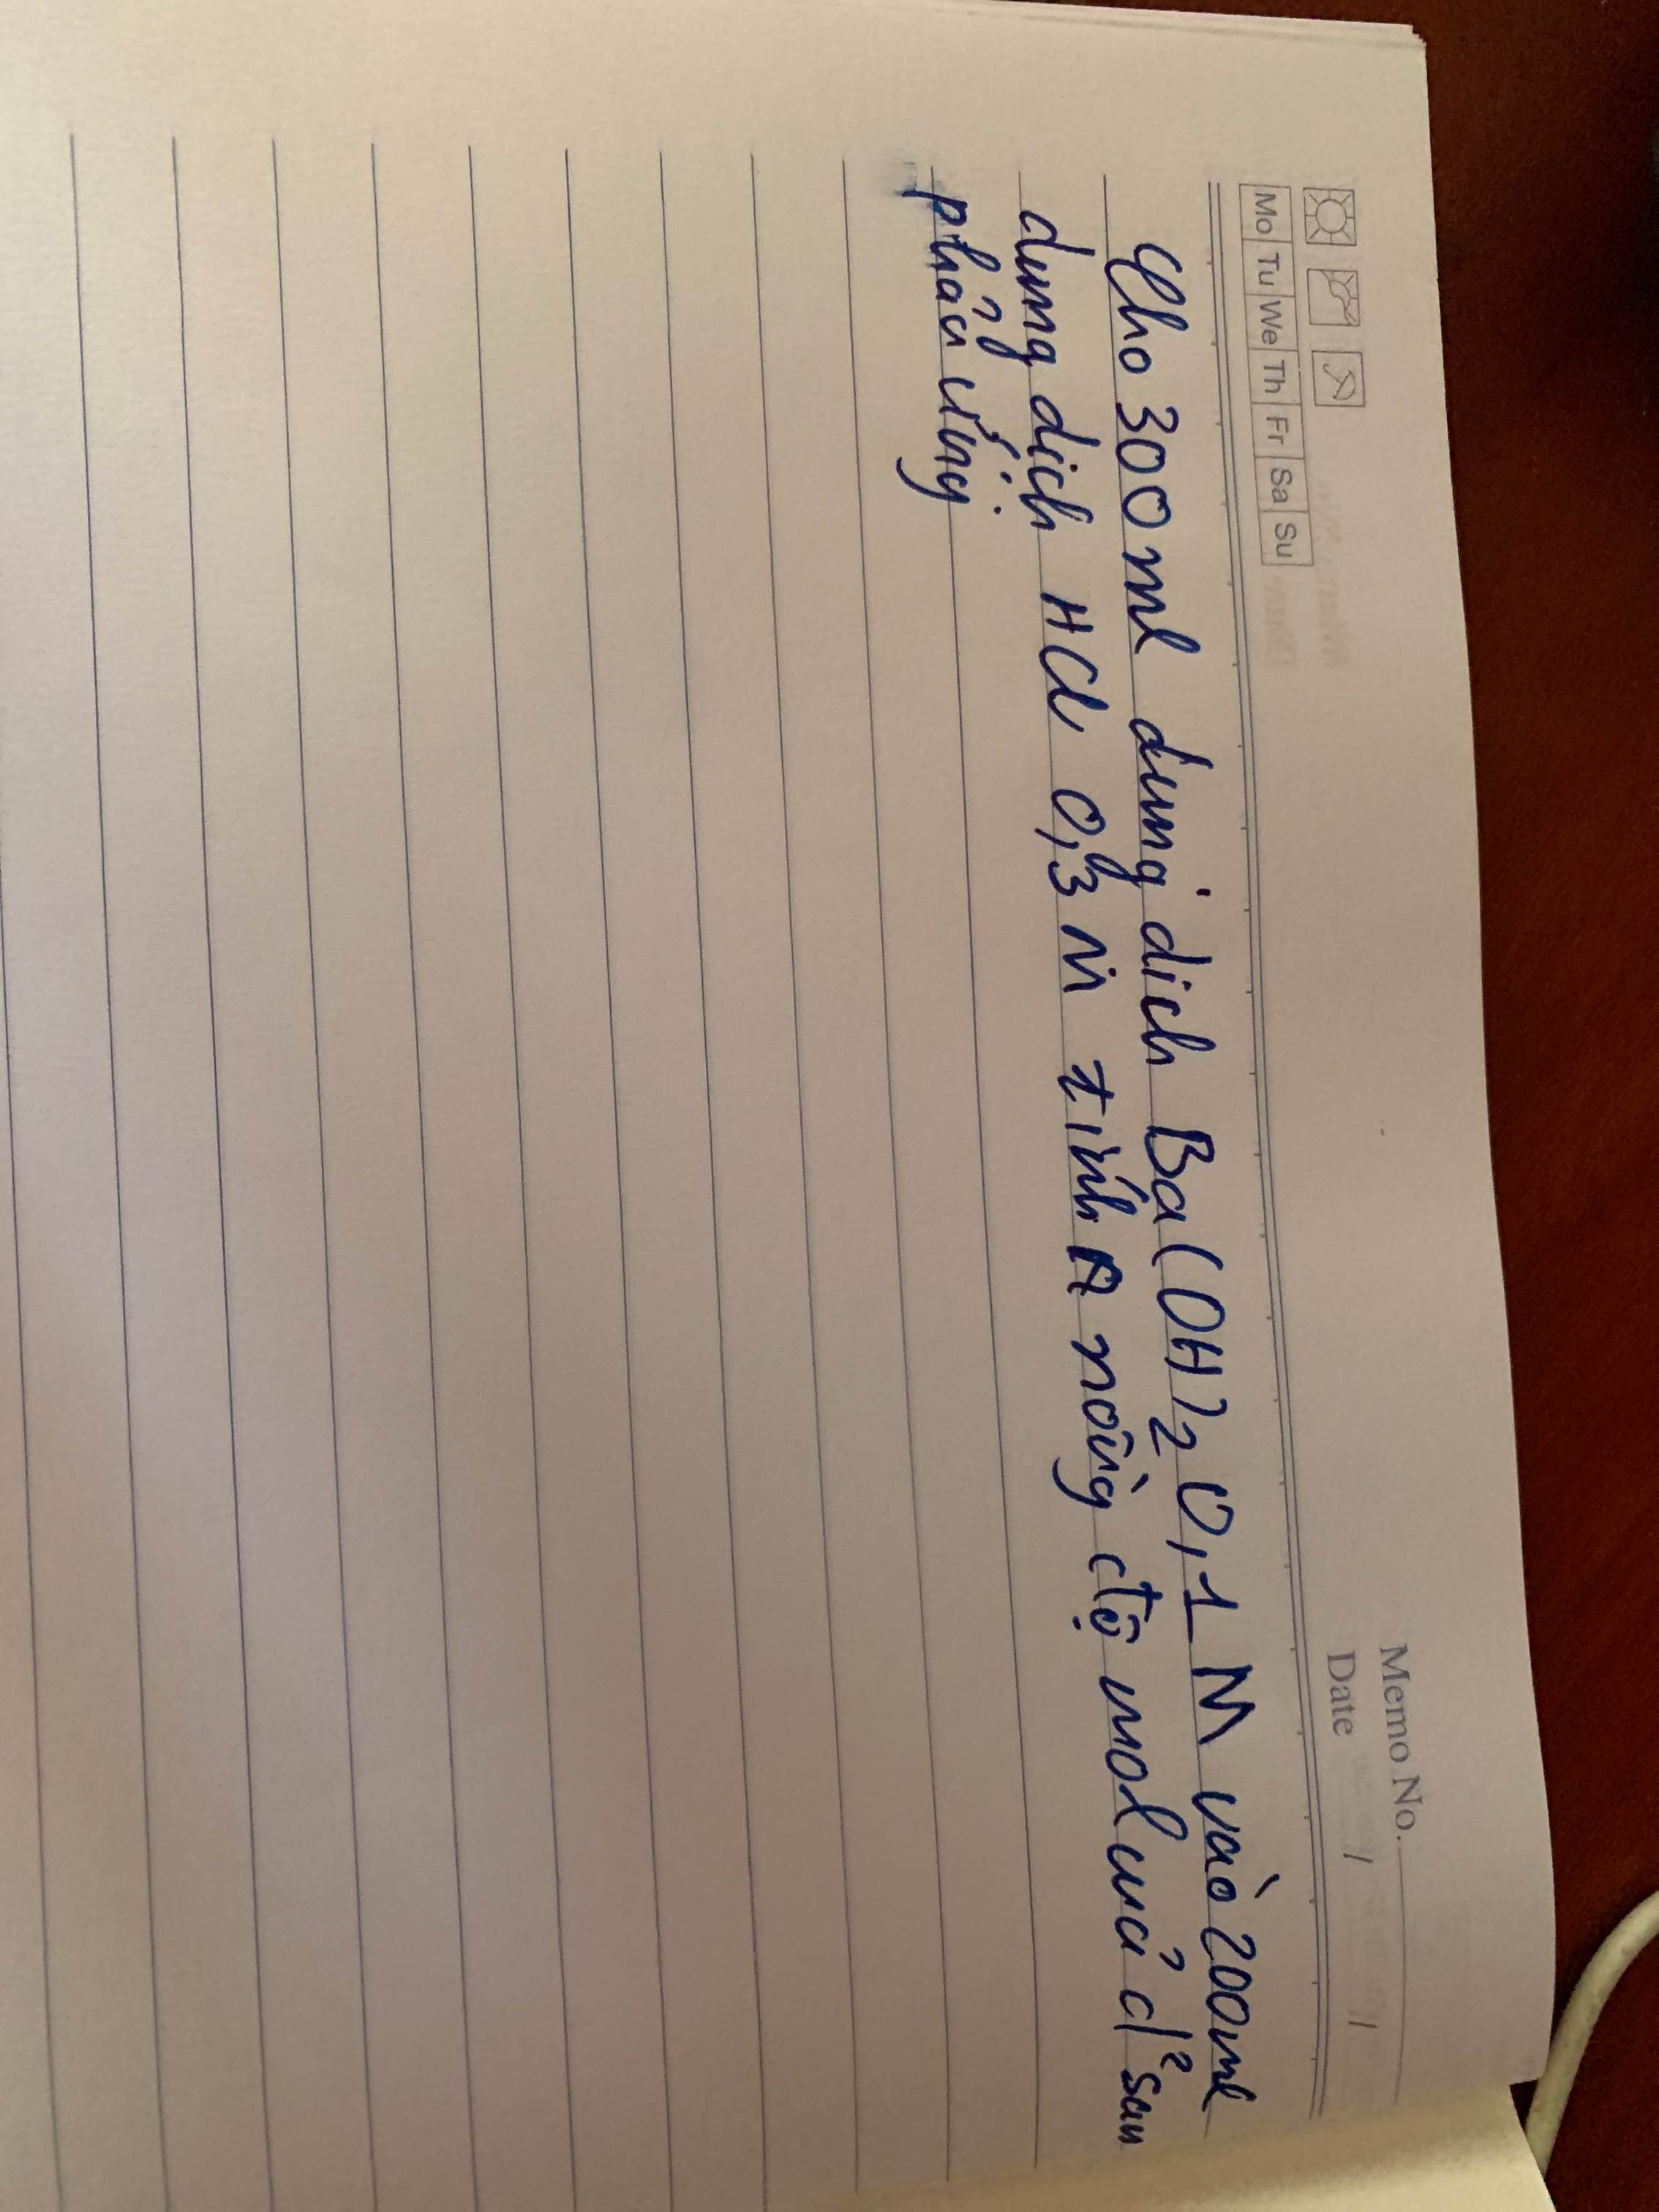 Memo No.
Date / /
Mo Tu We Th Fr Sa Su
Cho 300 ml dung dịch Ba(OH)2 0,1 M vào 200ml
dung dịch HCl 0,3 M tính nồng độ mol của d² sau
phản ứng